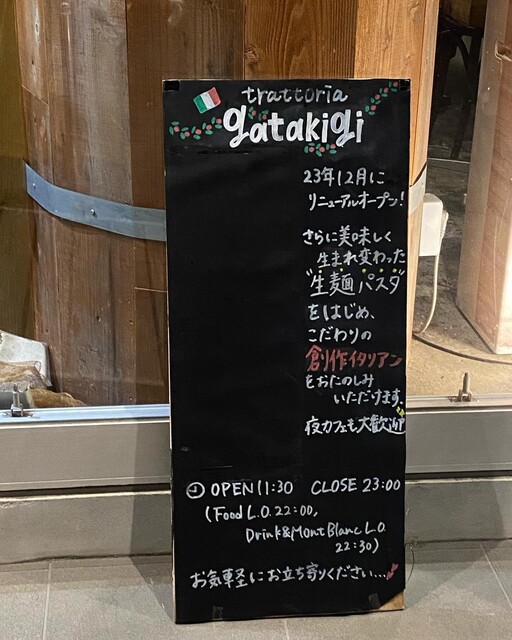 trattoria
gatakigi
23年12月に
リニューアルオープン!
さらに美味しく
生まれ変わった
"生麺パスタ"
をはじめ、
こだわりの
創作イタリアン
をおたのしみ
いただけます。
夜カフェも大歓迎
OPEN 11:30 CLOSE 23:00
(Food L.O. 22:00,
Drink&Mont Blanc L.O.
22:30)
お気軽にお立ち寄りください...